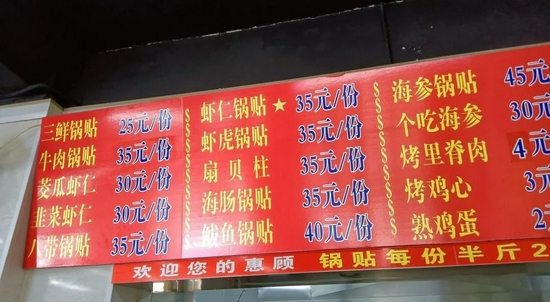 三鲜锅贴 25元/份
牛肉锅贴 35元/份
茭瓜虾仁 30元/份
韭菜虾仁 30元/份
八带锅贴 35元/份
虾仁锅贴★ 35元/份
虾虎锅贴 35元/份
扇贝柱 35元/份
海肠锅贴 35元/份
鲅鱼锅贴 40元/份
海参锅贴 45元
个吃海参 30元
烤里脊肉 4元
烤鸡心 3元
熟鸡蛋 2
欢迎您的惠顾 锅贴每份半斤2